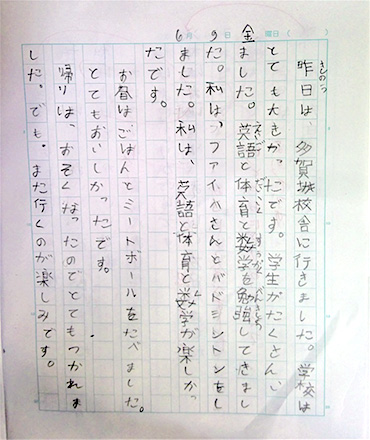 6月9日金曜日( )
昨日は、多賀城校舎に行きました。学校は
とても大きかったです。学生がたくさんい
ました。英語と体育と数学を勉強してきまし
た。私は、ファイハさんとバドミントンをし
ました。私は、英語と体育と数学が楽しかっ
たです。
お昼はごはんとミートボールをたべました。
とてもおいしかったです。
帰りは、おそくなったのでとてもつかれま
した。でも。また行くのが楽しみです。